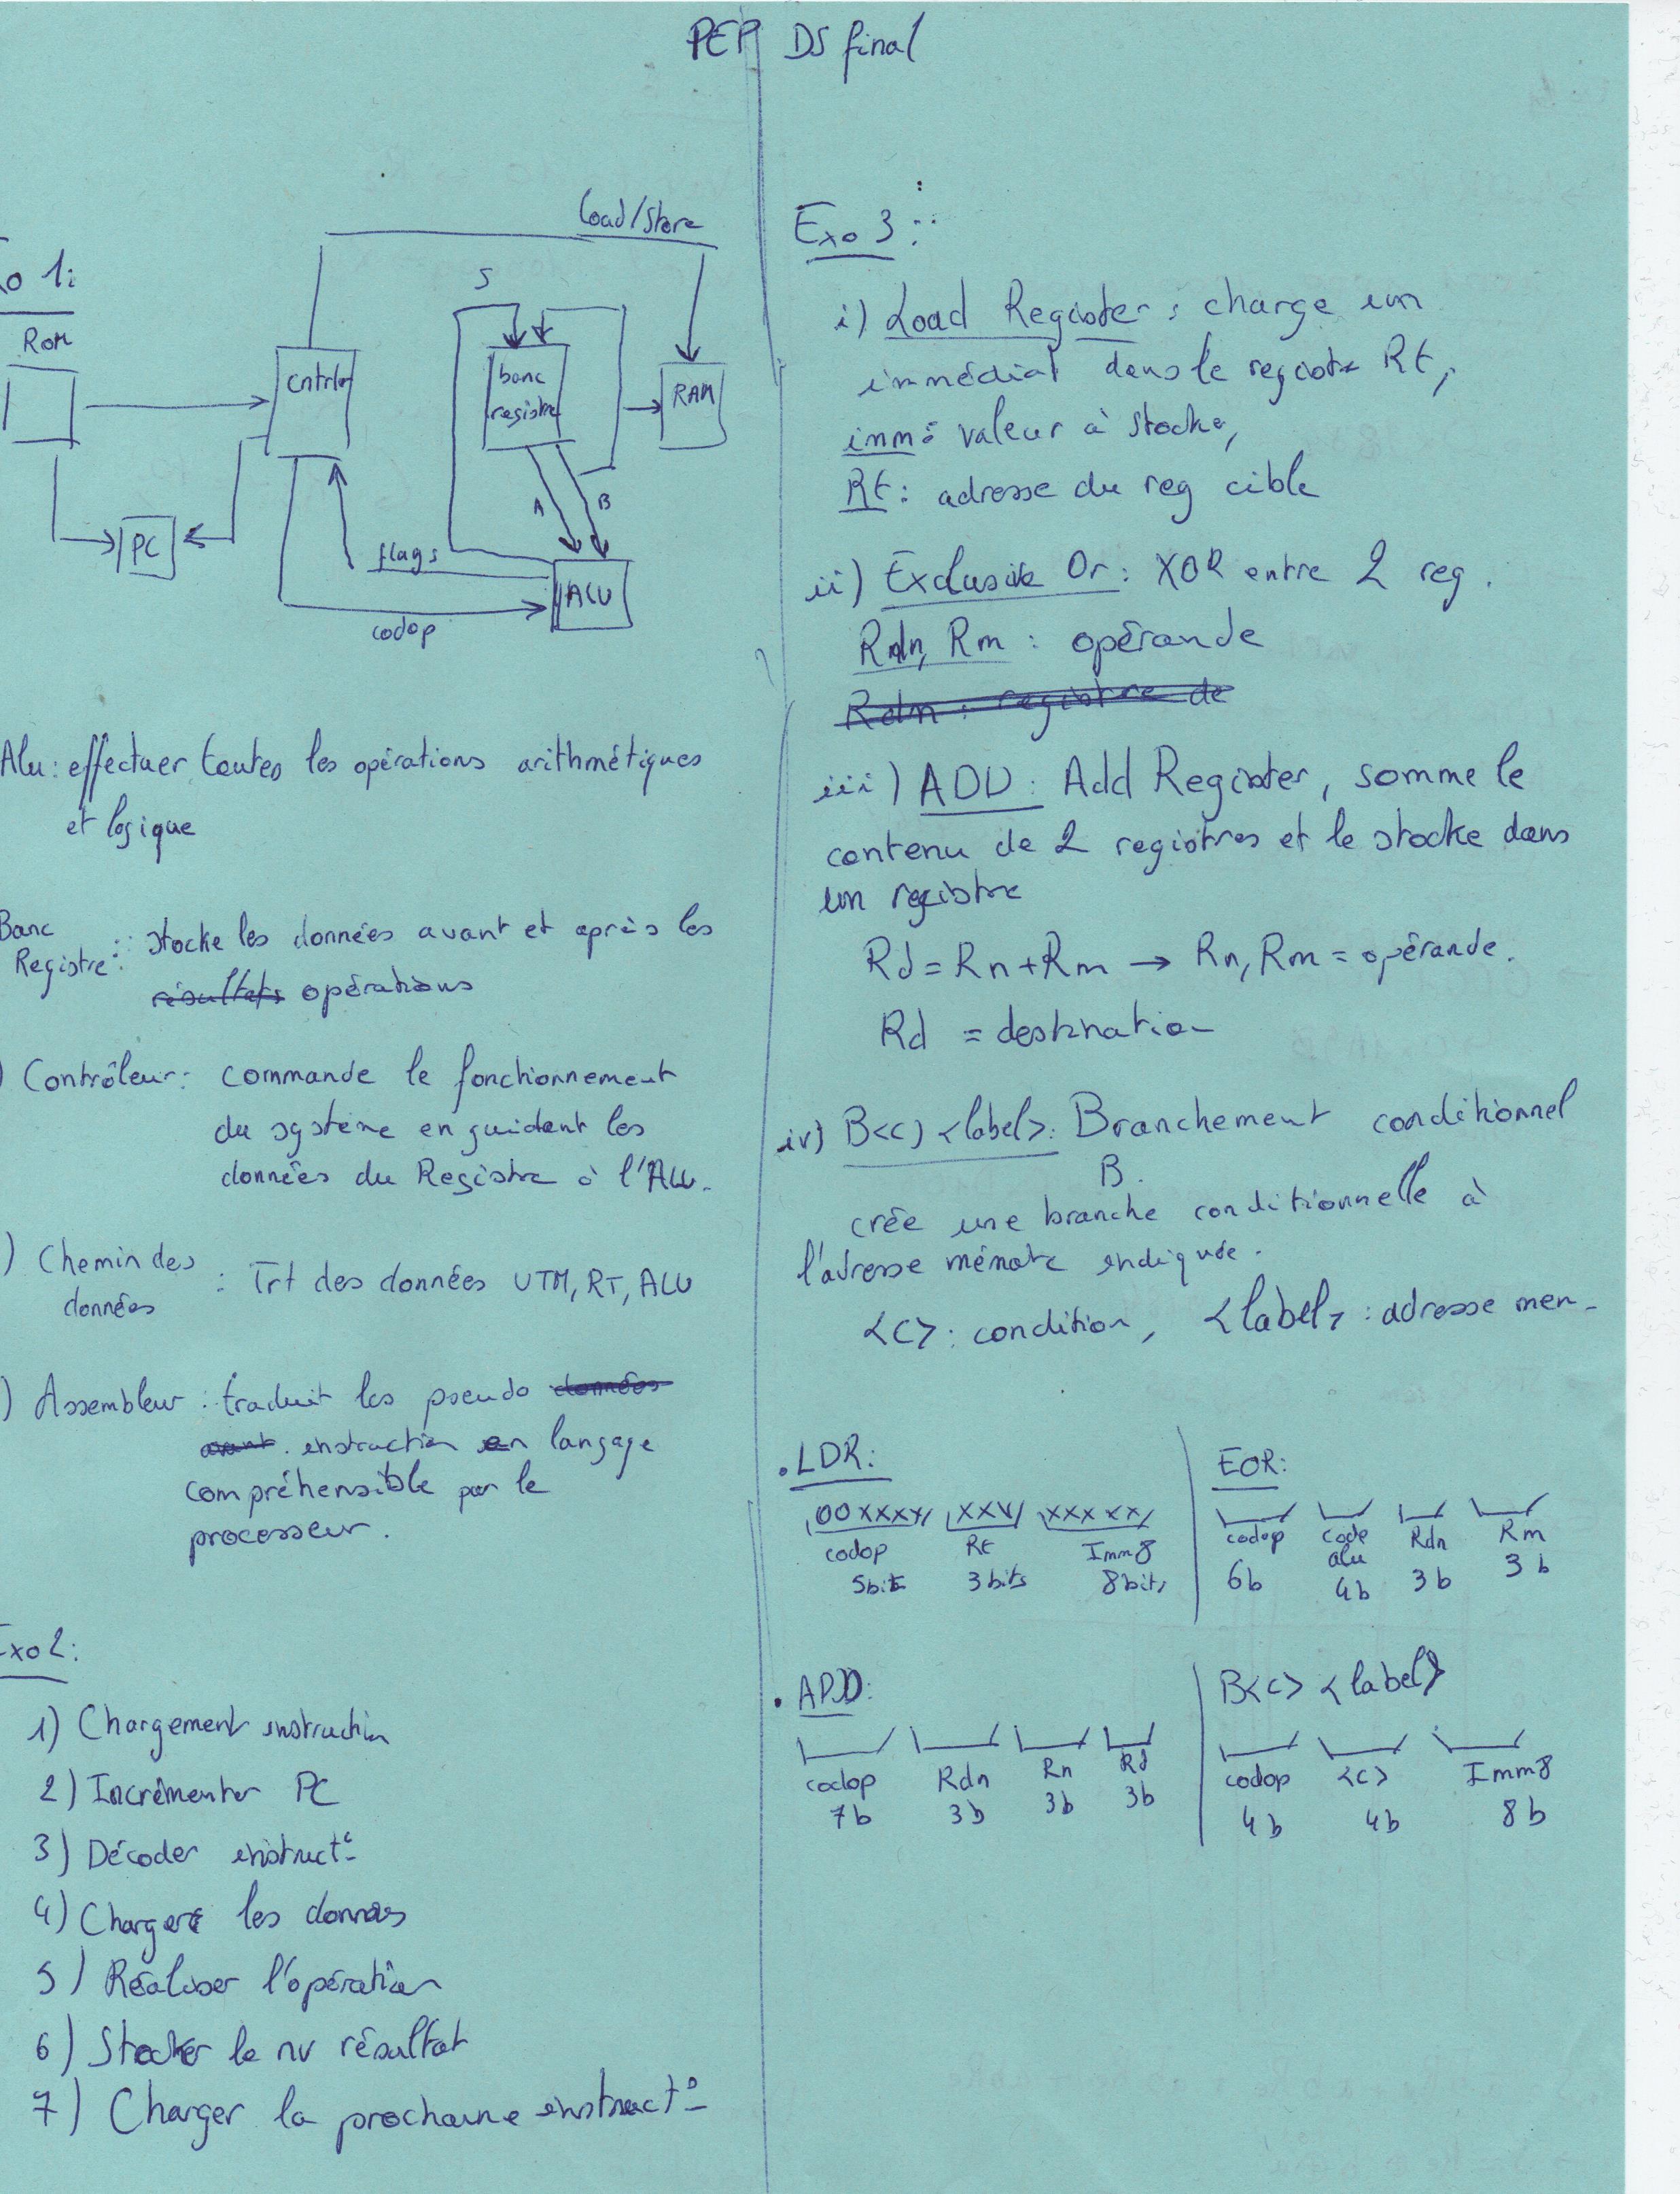 PEP DS final
o 1:
Load/Store
S
ROM
cntrler
banc
registre
RAM
A
B
PC
flags
ALU
codop
Alu : effectuer toutes les opérations arithmétiques
et logique
Banc
Registre : stocke les données avant et après les
résultats opérations
) Contrôleur : commande le fonctionnement
du système en guidant les
données du Registre à l'ALU.
) Chemin des
données : Trt des données UTM, RT, ALU
) Assembleur : traduit les pseudo données
avant. instruction en langage
compréhensible par le
processeur.
Exo 2:
1) Chargement instruction
2) Incrémenter PC
3) Décoder instruct°
4) Charger les données
5) Réaliser l'opération
6) Stocker le nv résultat
7) Charger la prochaine instruct°
Exo 3 :
i) Load Register : charge un
immédiat dans le registre Rt,
imm : valeur à stocker,
Rt : adresse du reg cible
ii) Exclusive Or : XOR entre 2 reg.
Rdn, Rm : opérande
Rdn : registre de
iii) ADD : Add Register, somme le
contenu de 2 registres et le stocke dans
un registre
Rd = Rn + Rm → Rn, Rm = opérande.
Rd = destination
iv) B<c> <label> : Branchement conditionnel
B.
crée une branche conditionnelle à
l'adresse mémoire indiquée.
<C> : condition, <label> : adresse mem
. LDR:
00xxxx xxx xxxxx
codop Rt Imm8
5bits 3bits 8bits
EOR:
codop code alu Rdn Rm
6b 4b 3b 3b
. ADD:
codop Rdn Rn Rd
7b 3b 3b 3b
B<c> <label>
codop <c> Imm8
4b 4b 8b